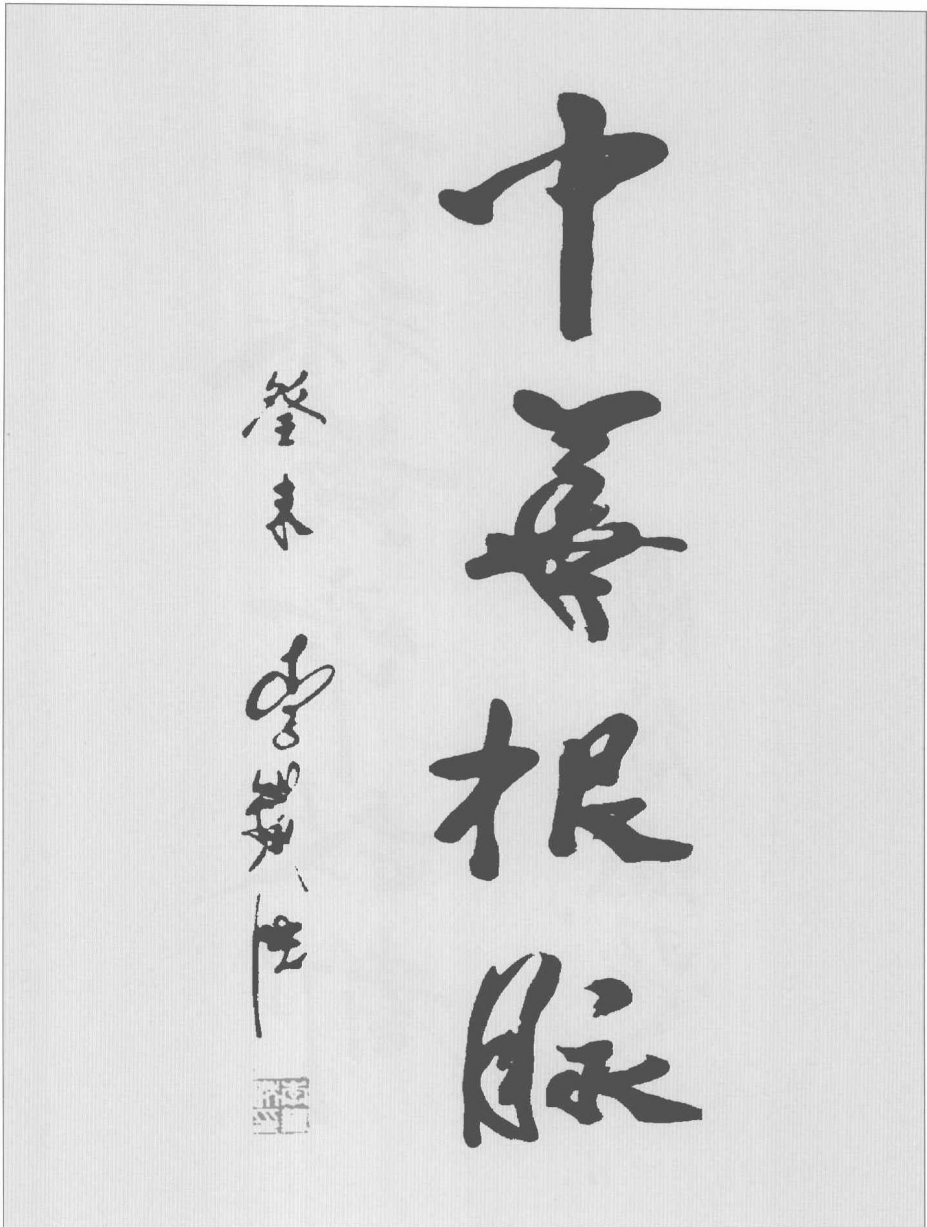 中華根脉
癸未 李